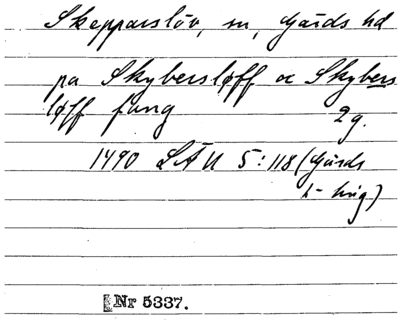 Skepparslöv, sn, Gärds hd
pa Skybersløff oc Skybers
løff fang 2g.
1490 LÄU 5:118 (Gärds
h- ting)
Nr 5337.